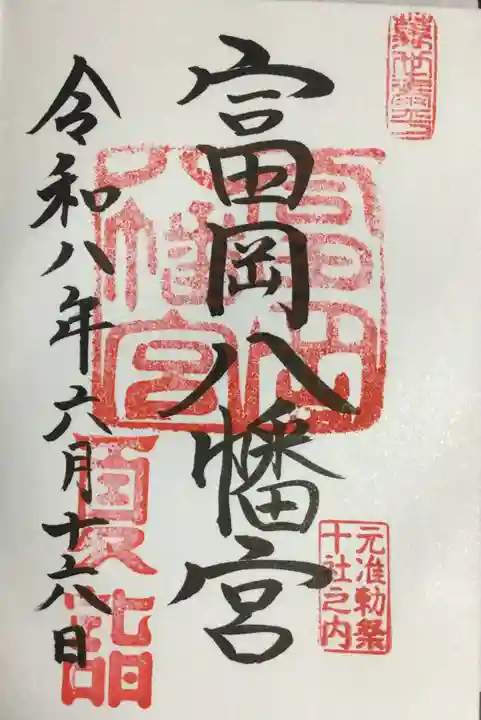 富岡八幡宮
元准勅祭
十社之内
富岡
八幡宮
令和八年六月十六日
夏詣